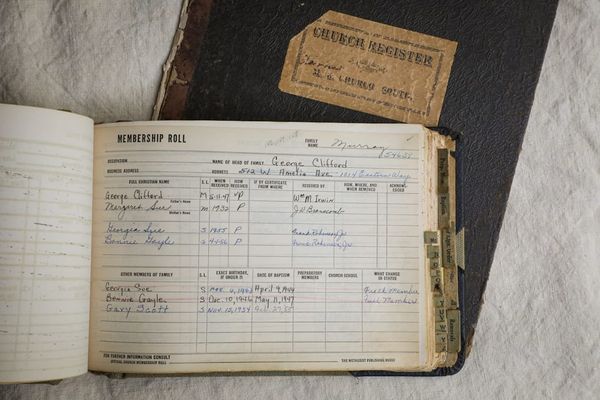 CHURCH REGISTER
M. E. CHURCH SOUTH.
MEMBERSHIP ROLL
FAMILY NAME Murray
OCCUPATION NAME OF HEAD OF FAMILY George Clifford
BUSINESS ADDRESS ADDRESS 542 W Amelia Ave. 1014 Eastern Way
FULL CHRISTIAN NAME S. L. WHEN RECEIVED HOW RECEIVED IF BY CERTIFICATE FROM WHERE RECEIVED BY HOW, WHERE, AND WHEN REMOVED
George Clifford M 5-11-47 P Wm M Irwin
Father's Name
Margaret Sue M 1932 P J.W. Branscomb
Mother's Name
Georgia Sue S 1955 P
Bonnie Gayle S P
OTHER MEMBERS OF FAMILY S. L. EXACT BIRTHDAY, IF UNDER 21 DATE OF BAPTISM PREPARATORY MEMBERS CHURCH SCHOOL WHAT CHANGE IN STATUS
Georgia Sue S April 9, 1944 Member
Bonnie Gayle S Dec. 10, 1946 May 11, 1947 Full Member
Gary Scott S Nov. 12, 1954
FOR FURTHER INFORMATION CONSULT
OFFICIAL CHURCH MEMBERSHIP ROLL THE METHODIST PUBLISHING HOUSE